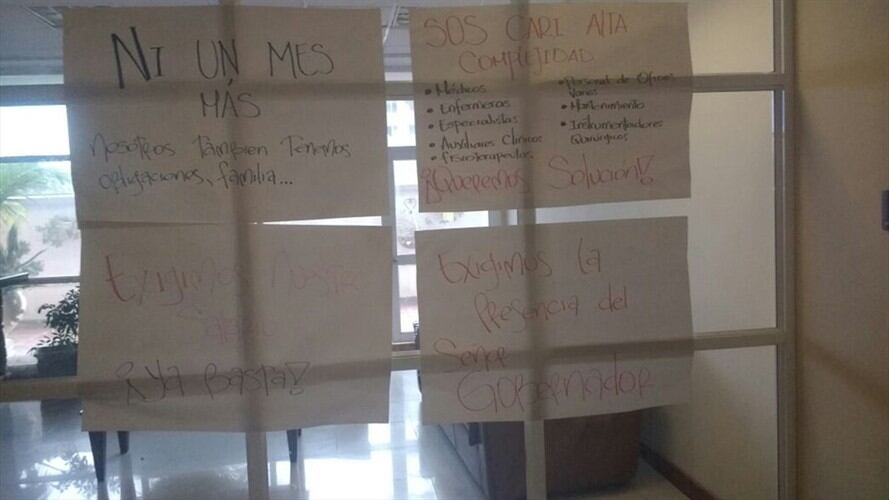 NI UN MES
MÁS
Nosotros Tambien Tenemos
obligaciones, familia...
SOS CARI Alta
COMPLEJIDAD
• Médicos
• Enfermeras
• Especialistas
• Auxiliares Clínicos
• Fisioterapeutas
• Personal de Oficios
Varios
• Mantenimiento
• Instrumentadores
Quirurgicos
¡¡Queremos Solución!!
Exigimos
¡¡Ya Basta!!
Exigimos la
Presencia del
Señor
Gobernador